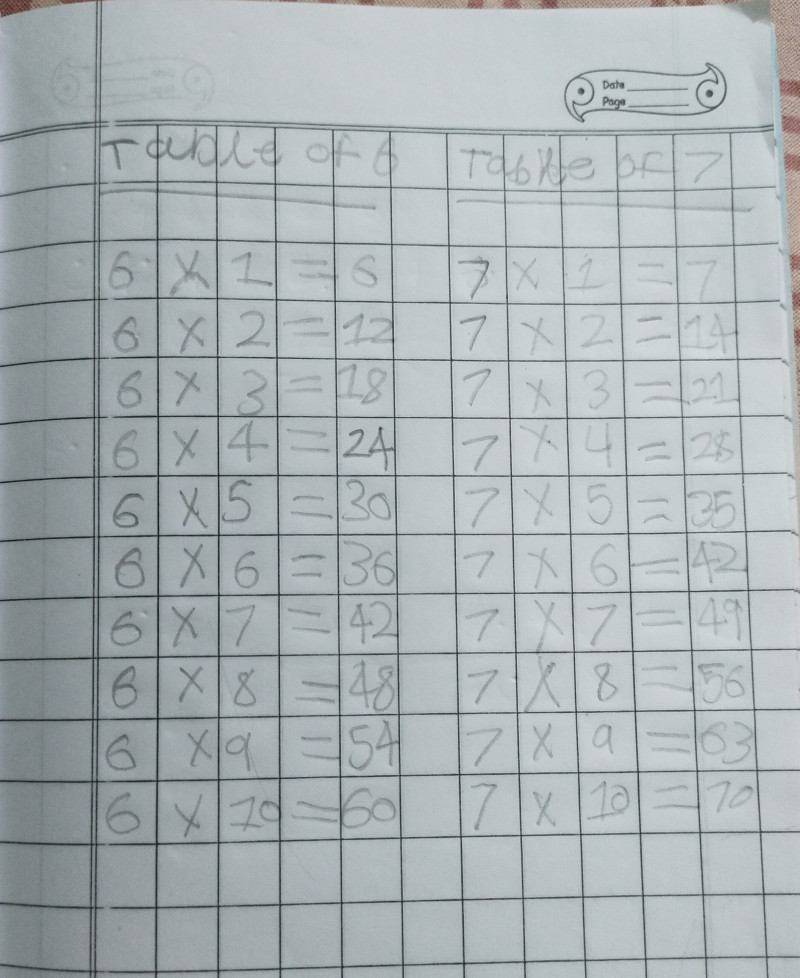 Date
Page
Table of 6 Table of 7
6 × 1 = 6 7 × 1 = 7
6 × 2 = 12 7 × 2 = 14
6 × 3 = 18 7 × 3 = 21
6 × 4 = 24 7 × 4 = 28
6 × 5 = 30 7 × 5 = 35
6 × 6 = 36 7 × 6 = 42
6 × 7 = 42 7 × 7 = 49
6 × 8 = 48 7 × 8 = 56
6 × 9 = 54 7 × 9 = 63
6 × 10 = 60 7 × 10 = 70